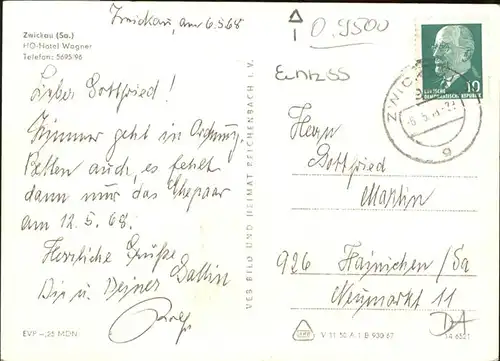 Zwickau, am 6.5.68
Zwickau (Sa.)
HO-Hotel Wagner
Telefon: 5695/96
Lieber Gottfried!
Zimmer geht in Ordnung,
Betten auch, es fehlt
dann nur das Ehepaar
am 12.5.68.
Herzliche Grüße
Dir u. Deiner Gattin
Rolf
EVP –,25 MDN
VEB BILD UND HEIMAT REICHENBACH I. V.
0.9500
DEUTSCHE
DEMOKRATISCHE REPUBLIK
10
ZWICK
Herrn
Gottfried
Martin
926 Hainichen/Sa
Neumarkt 11
V 11 50 A 1 B 930 67
DA